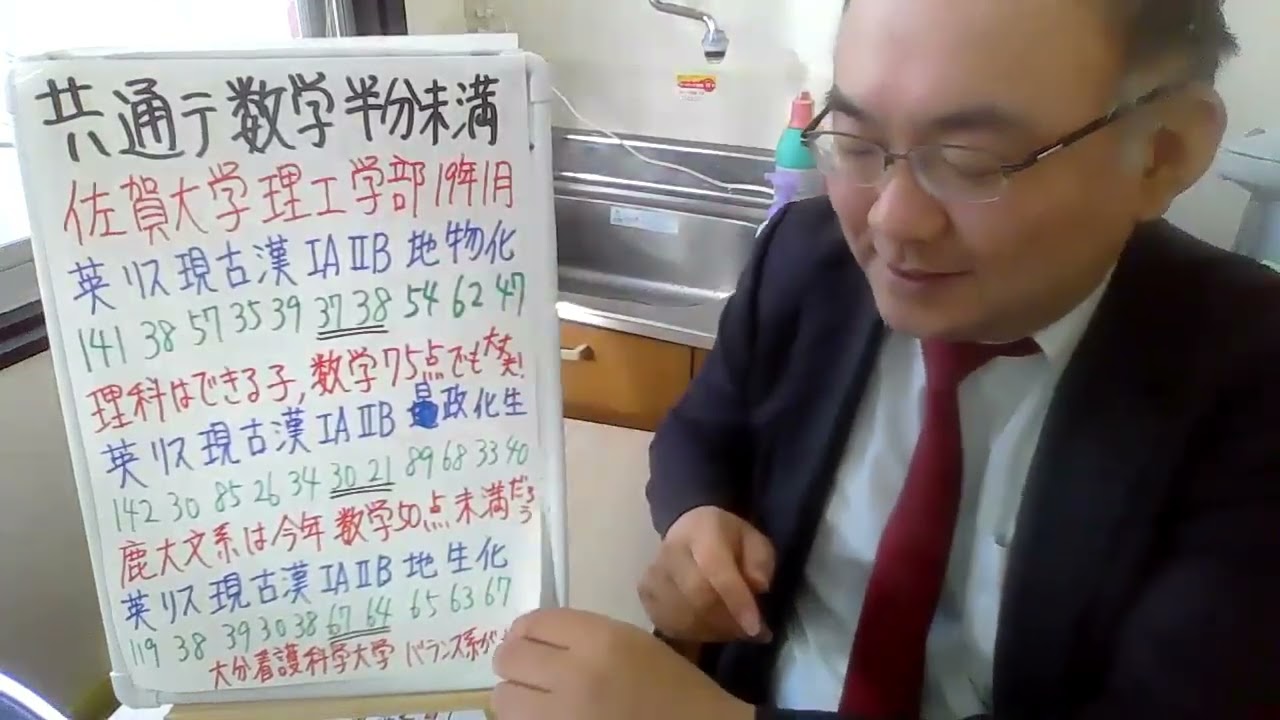 共通テ数学半分未満
佐賀大学理工学部19年1月
英リス現古漢ⅠAⅡB地物化
141 38 57 35 39 37 38 54 62 47
理科はできる子,数学75点でも大丈夫!
英リス現古漢ⅠAⅡB 政化生
142 30 85 26 34 30 21 89 68 33 40
鹿大文系は今年数学50点未満だろう
英リス現古漢ⅠAⅡB地生化
119 38 39 30 38 67 64 65 63 67
大分看護科学大学 バランス系が